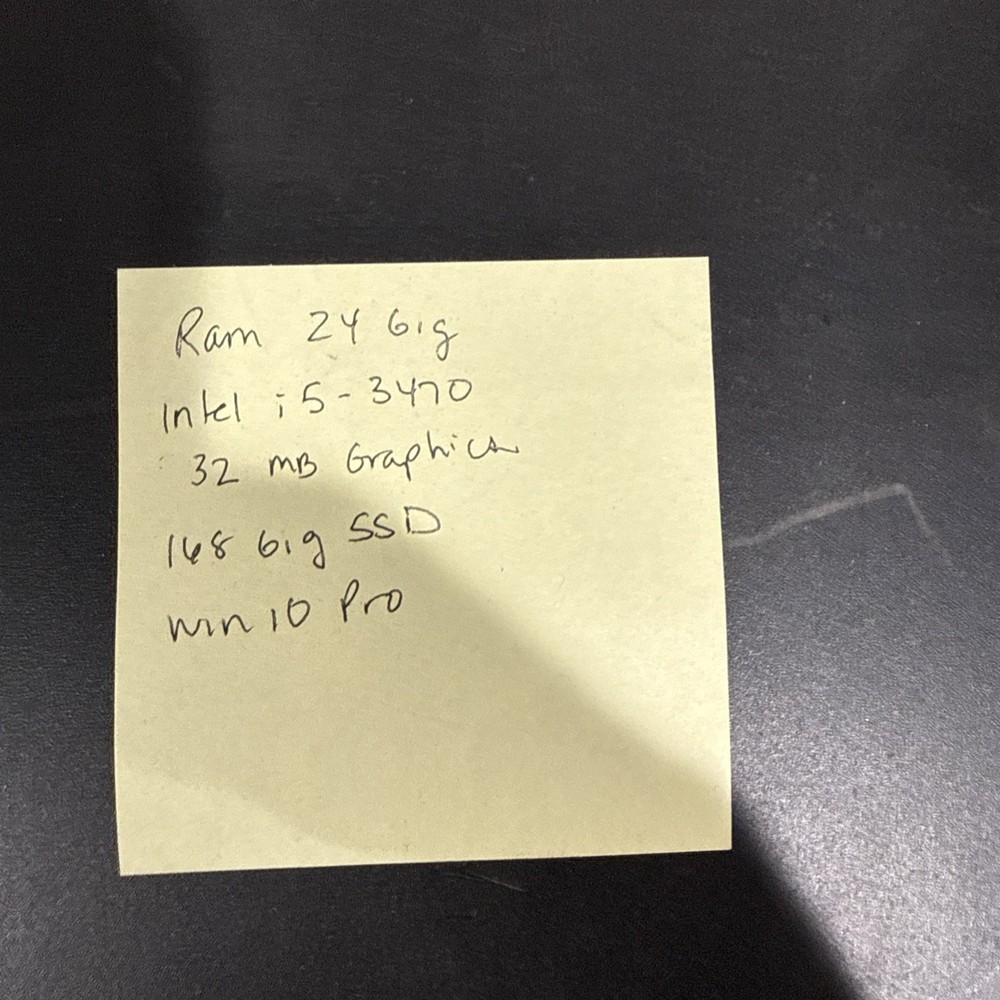 Ram 24 Gig
Intel i5-3470
32 MB Graphics
168 Gig SSD
Win 10 Pro